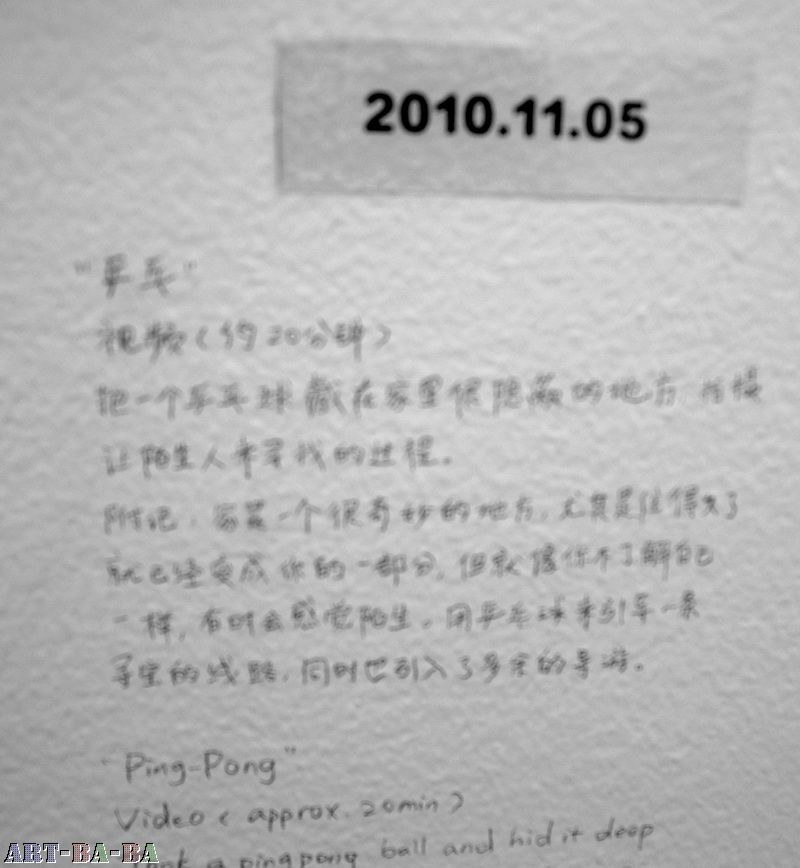 2010.11.05
"乒乓"
视频(约20分钟)
把一个乒乓球藏在家里很隐蔽的地方 拍摄
让陌生人来寻找的过程.
附记. 家是一个很奇妙的地方, 尤其是住得久了
就已经变成你的一部分, 但就像你不了解自己
一样, 有时会感觉陌生. 用乒乓球来引导一条
寻宝的线路, 同时也引入了多余的导游.
"Ping-Pong"
Video ( approx. 20min )
a pingpong ball and hid it deep
ART-BA-BA